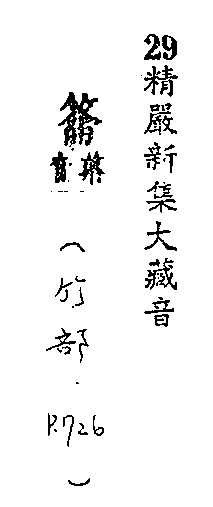 29精嚴新集大藏音
(竹部.P.726)